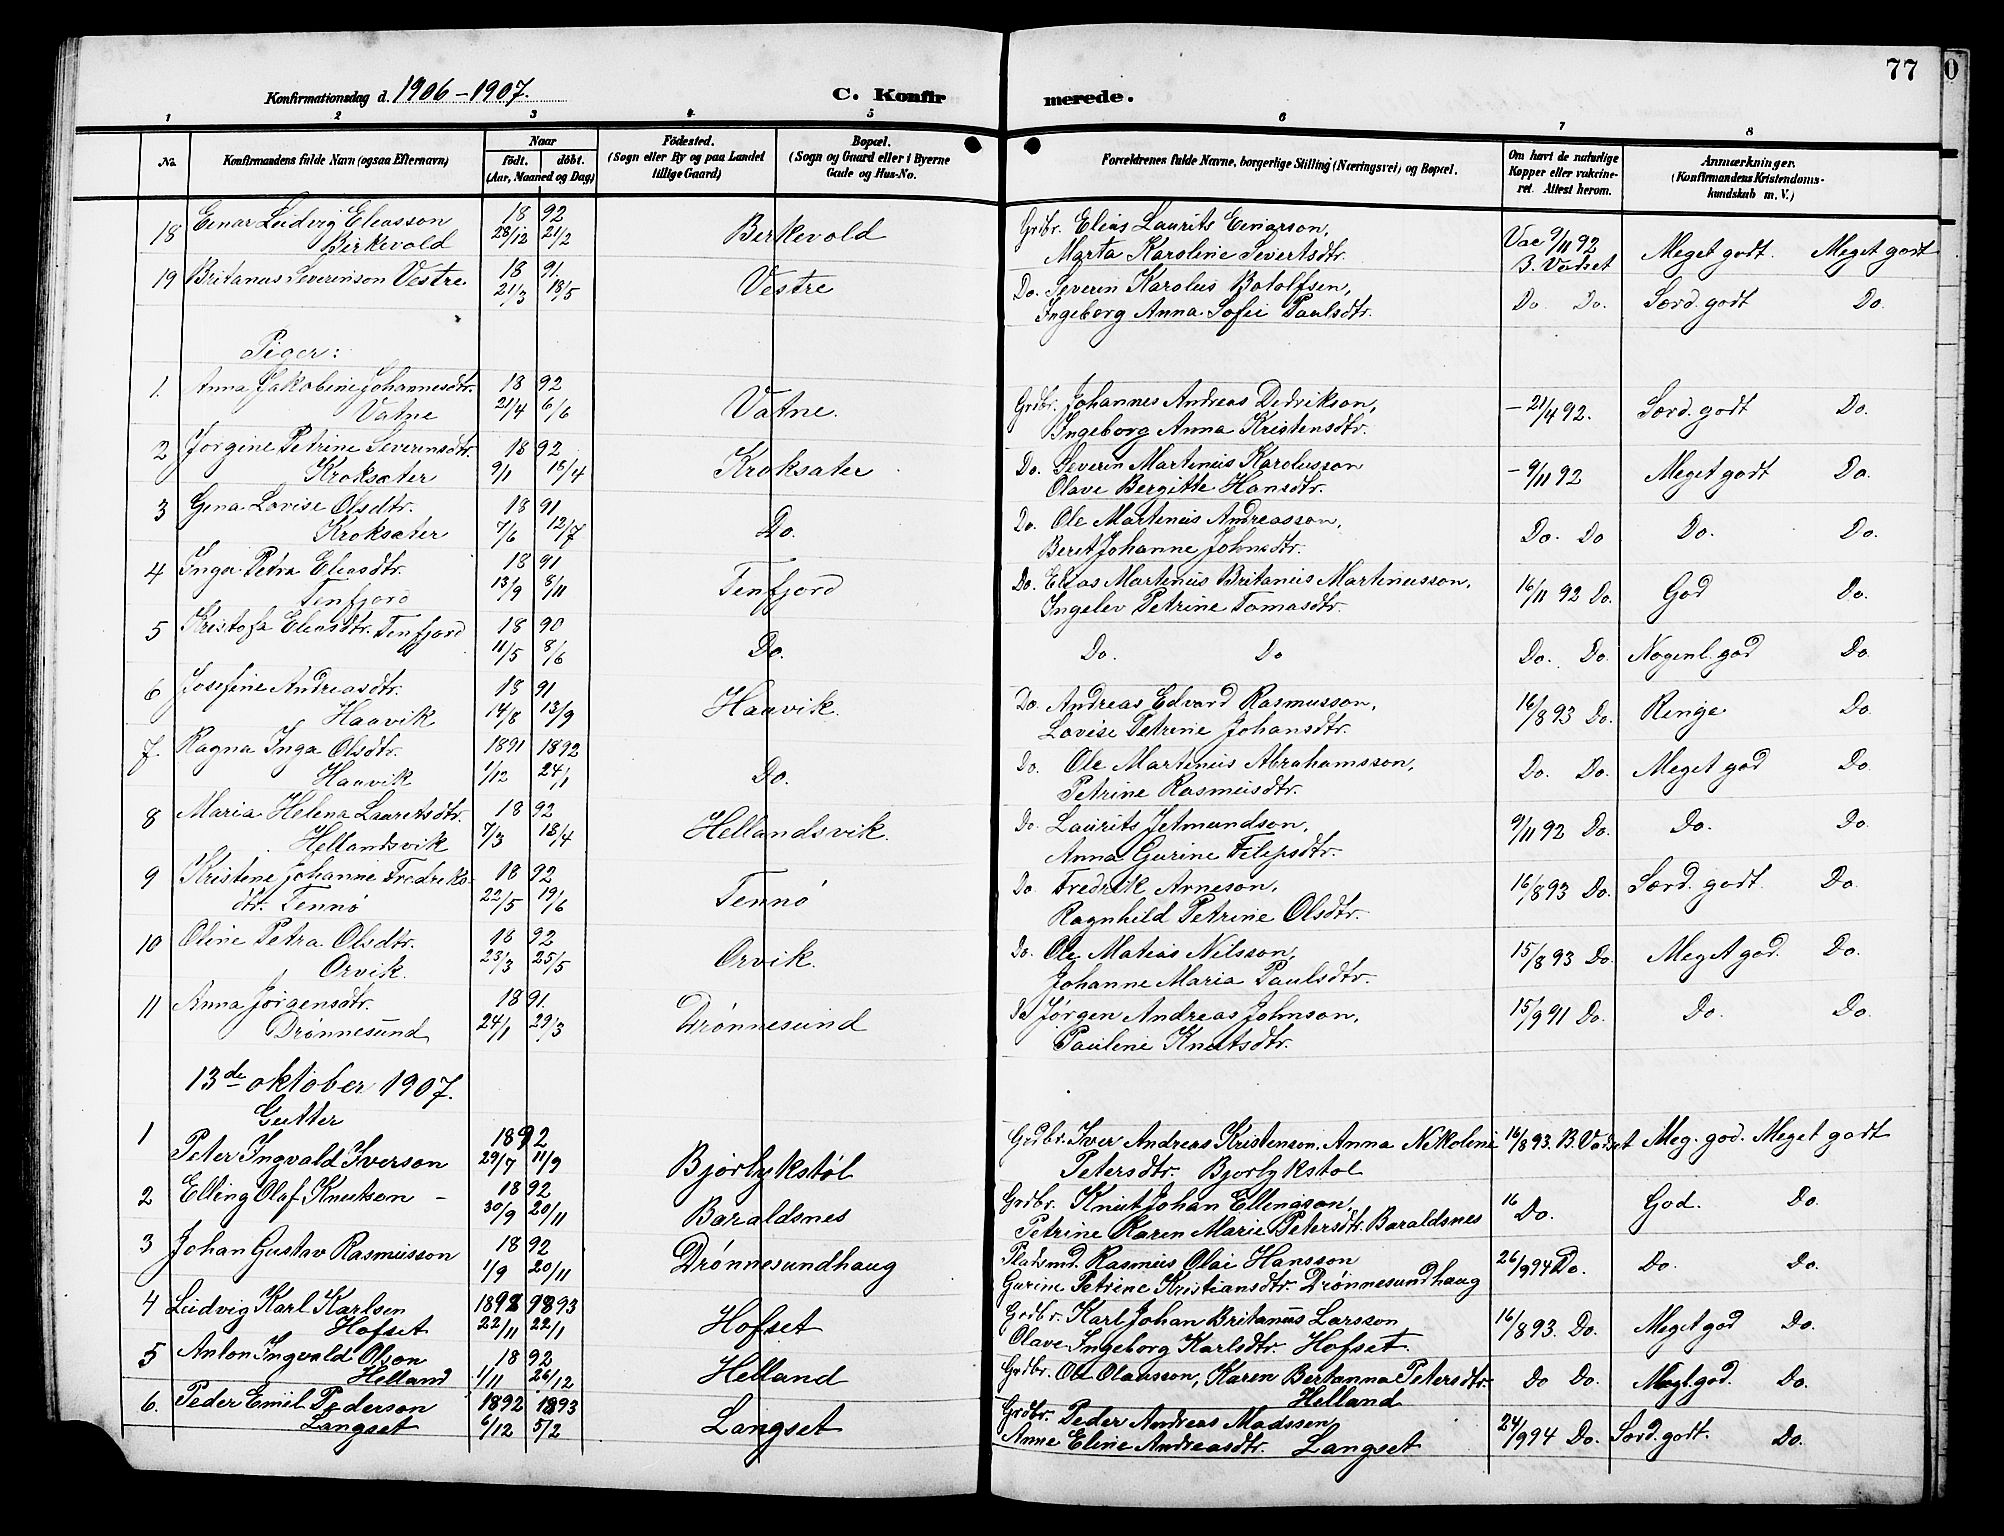 77
0
Konfirmationsdag d. 1906-1907.
C. Konfirmerede.
1 2 3 4 5 6 7 8
No. Konfirmandens fulde Navn (ogsaa Efternavn) Naar födt. döbt. (Aar, Maaned og Dag) Födested. (Sogn eller By og paa Landet tillige Gaard) Bopæl. (Sogn og Gaard eller i Byerne Gade og Hus-No. Forældrenes fulde Navne, borgerlige Stilling (Næringsvei) og Bopæl. Om havt de naturlige Kopper eller vaksineret. Attest herom. Anmærkninger. (Konfirmandens Kristendomskundskab m. V.)
18 Einar Ludvig Eleasson 18 92 Grdbr. Elias Laurits Einarson, Vac 9/11 92
Birkevold 28/12 21/2 Birkevold Marta Karoline Sivertsdtr. B. Vadset Meget godt. Meget godt
19 Britanus Severinson Vestre 18 91 Vestre Do. Severin Karolus Botolfsen,
21/3 18/5 Ingeborg Anna Sofie Paulsdtr. Do Do. Særd. godt Do.
Piger:
1. Anna Jakobine Johannesdtr. 18 92 Grdbr. Johannes Andreas Dedrikson, - 21/4 92. Særd. godt Do.
Vatne 21/4 6/6 Vatne. Ingeborg Anna Kristensdtr.
2 Jorgine Petrine Severinsdtr. 18 92 Do. Severin Martinus Karolusson - 9/11 92 Meget godt Do.
Kroksater 9/1 18/4 Kroksater Olave Bergitte Hansdtr.
3 Gina Lovise Olsdtr. 18 91 Do. Ole Martinus Andreasson,
Kroksater 7/6 12/7 Do. Beret Johanne Johnsdtr. Do. Do Do. Do.
4 Inga Petra Eleasdtr. 18 91 Do. Elias Martinus Britanus Martinusson, 16/11 92 Do. God Do.
Tenfjord 13/9 8/11 Tenfjord Ingelev Petrine Tomasdtr.
5 Kristofa Eleasdtr. Tenfjord 18 90
11/5 8/6 Do. Do. Do Do. Do. Nogenl. god Do.
6 Josefine Andreasdtr. 18 91 Do. Andreas Edvard Rasmusson, 16/8 93 Do. Ringe Do.
Haavik 14/8 13/9 Haavik. Lovise Petrine Johansdtr.
7. Ragna Inga Olsdtr. 1891 1892 Do. Ole Martinus Abrahamsson,
Haavik 1/12 24/1 Do. Petrine Rasmusdtr. Do. Do. Meget god Do.
8 Maria Helena Lauritsdtr. 18 92 Do Laurits Jetmundson, 9/11 92 Do. Do. Do.
Hellandsvik 7/3 18/4 Hellandsvik. Anna Gurine Filipsdtr.
9 Kristine Johanne Fredriks- 18 92 Do Fredrik Arneson, 16/8 93 Do. Særd. godt. Do.
dtr. Tennö 22/5 19/6 Tennö Ragnhild Petrine Olsdtr.
10 Oline Petra Olsdtr. 18 92 Do. Ole Matias Nilsson, 15/8 93 Do. Meget god. Do.
Orvik. 23/3 25/5 Orvik. Johanne Maria Paulsdtr.
11 Anna Jörgensdtr. 18 91. Do Jörgen Andreas Johnson, 15/9 91 Do. Do. Do.
Drönnesund 24/1 29/3 Drönnesund Pauline Knutsdtr.
13de oktober 1907.
Gutter
1 1892 Grdbr. Iver Andreas Kristenson, Anna Nikoline 16/8 93. B. Vadset Meg. god. Meget godt
Peter Ingvald Iverson 29/7 11/9 Bjorlykstöl Petersdtr. Bjorlykstol
2 Elling Olaf Knutsen - 18 92 Grdbr. Knut Johan Ellingson, 16 Do. God. Do.
30/9 20/11 Baraldsnes Petrine Karen Marie Petersdtr. Baraldsnes
3 Johan Gustav Rasmusson 18 92 Pladsmd. Rasmus Olai Hansson 26/9 94 Do. Do. Do.
1/9 20/11 Drönnesundhaug Gurine Petrine Kristiansdtr. Drönnesundhaug
4 Ludvig Karl Karlsen 1892 1893 Grdbr. Karl Johan Britanus Larsson 16/8 93. Do. Meget god Do.
Hofset 22/11 22/1 Hofset Olave Ingeborg Karlsdtr. Hofset.
5 Anton Ingvald Olson 18 92 Grdbr. Ole Olausson, Karen Bertanna Petersdtr. Do Do. Megt. god. Do.
Helland 1/11 26/12 Helland Helland
6. Peder Emil Pederson 1892 1893 Grdbr. Peder Andreas Madssen, 24/9 94 Do. Særd. godt. Do.
Langset 6/12 5/2 Langset Anne Eline Andreasdtr. Langset